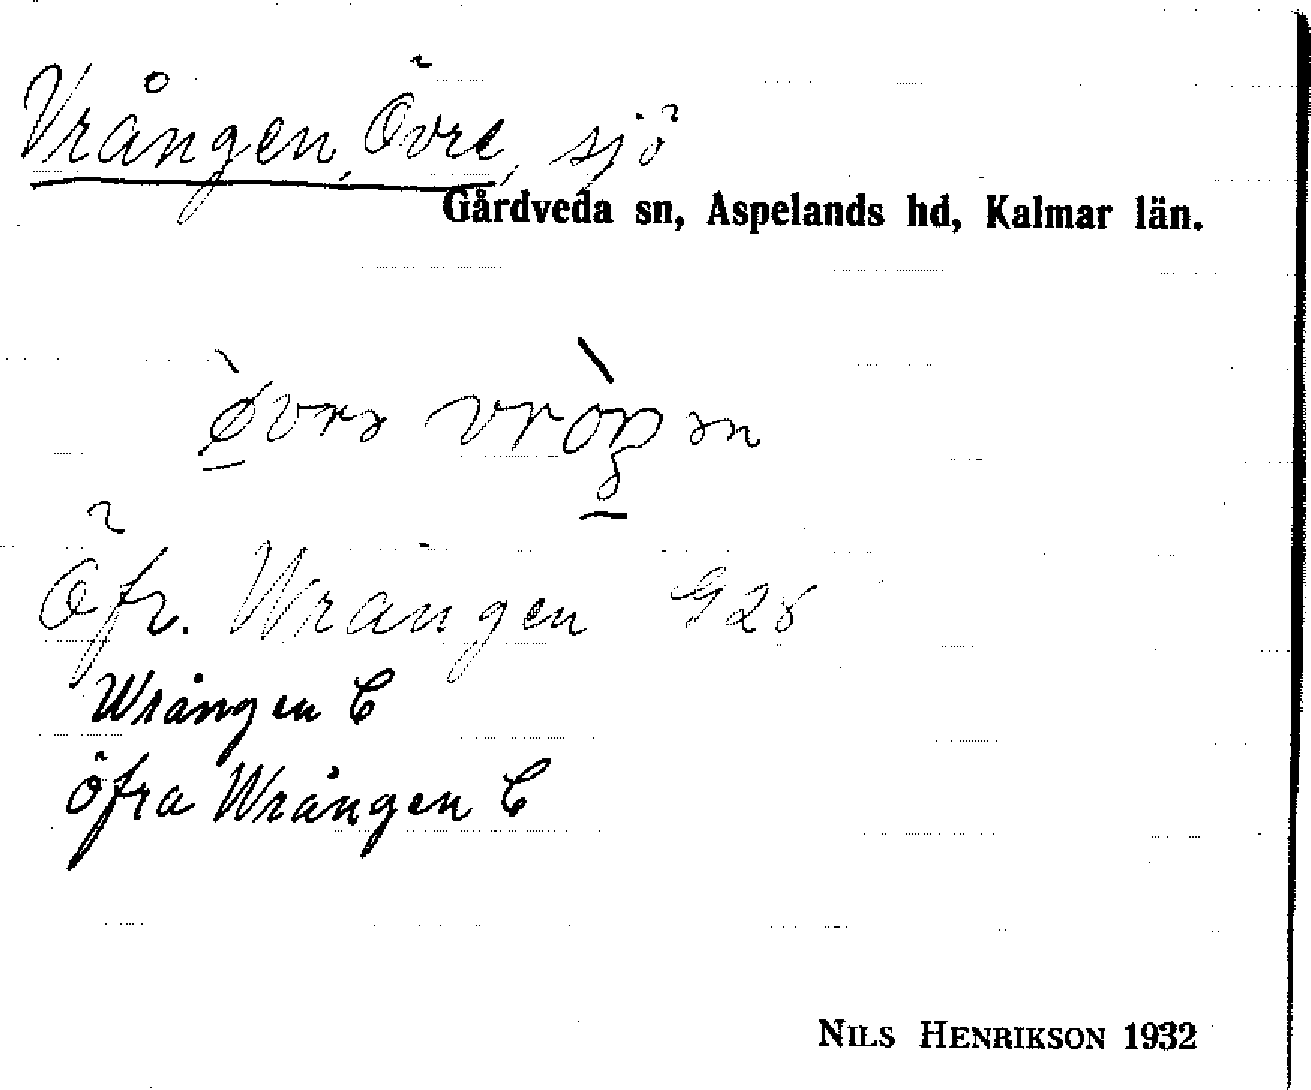 Vrången, Övre, sjö
Gårdveda sn, Aspelands hd, Kalmar län.
Öfr. Wrången G28
Wrången C
öfra Wrången C
NILS HENRIKSON 1932